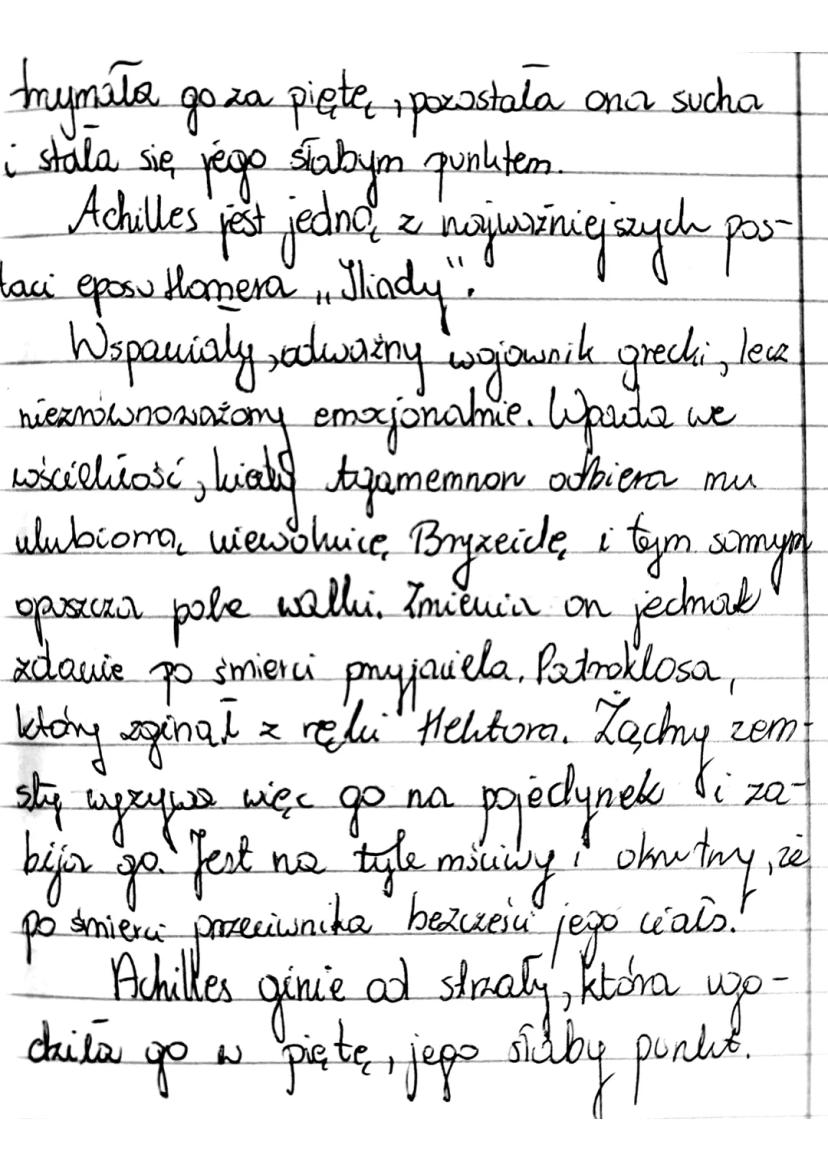 trzymała go za piętę, pozostała ona sucha
i stała się jego słabym punktem.
Achilles jest jedną z najważniejszych pos-
taci eposu Homera „Iliady".
Wspaniały, odważny wojownik grecki, lecz
niezrównoważony emocjonalnie. Wpada we
wściekłość, kiedy Agamemnon odbiera mu
ulubioną niewolnicę Bryzeidę i tym samym
opuszcza pole walki. Zmienia on jednak
zdanie po śmierci przyjaciela, Patroklosa,
który zginął z ręki Hektora. Żądny zem-
sty wyzywa więc go na pojedynek i za-
bija go. Jest na tyle mściwy i okrutny, że
po śmierci przeciwnika bezcześci jego ciało.
Achilles ginie od strzały, która ugo-
dziła go w piętę, jego słaby punkt.